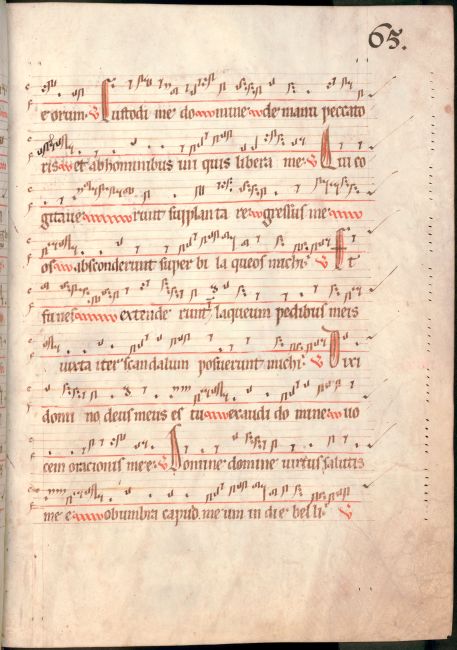 65.
eorum. V Custodi me domine de manu peccato
ris et ab hominibus iniquis libera me. V Qui co
gitaue runt supplanta re gressus me
os absconderunt superbi laqueos michi. V Et
funes extenderunt laqueum pedibus meis
iuxta iter scandalum posuerunt michi. V Dixi
domino deus meus es tu exaudi domine uo
cem oracionis mee. V Domine domine uirtus salutis
mee obumbra caput meum in die belli. V